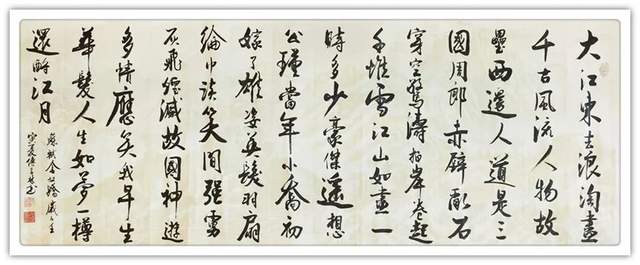 大江東去浪淘盡
千古風流人物故
壘西邊人道是三
國周郎赤壁亂石
穿空驚濤拍岸卷起
千堆雪江山如畫一
時多少豪傑遙想
公瑾當年小喬初
嫁了雄姿英髮羽扇
綸巾談笑間強虜
灰飛煙滅故國神遊
多情應笑我早生
華髮人生如夢一樽
還酹江月
蘇軾